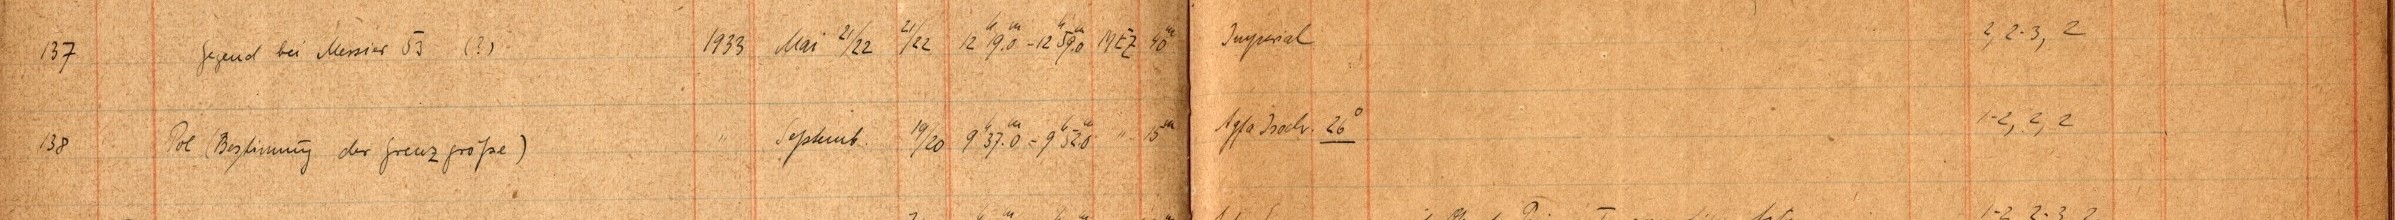 137 Gegend bei Messier 53 (?) 1933 Mai 21/22 21/22 12h 19m.0 - 12h 59m.0 MEZ 40m Imperial 2, 2-3, 2
138 Pol (Bestimmung der Grenzgröße) " Septemb. 19/20 9h 37m.0 - 9h 52m.0 " 15m Agfa Isochr. 26° 1-2, 2, 2
1-2, 2-3, 2